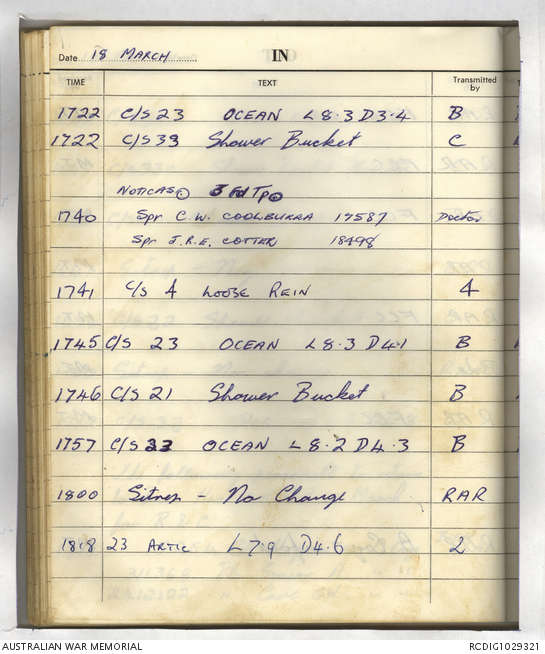 Date 18 MARCH IN
TIME TEXT Transmitted by
1722 C/S 23 OCEAN L8.3 D3.4 B
1722 C/S 33 Shower Bucket C
NOTICAS 3 Fd Tp
1740 Spr C.W. COOLBURRA 17587 Doctor
Spr J.R.E. COTTER 18498
1741 C/S 4 LOOSE REIN 4
1745 C/S 23 OCEAN L8.3 D4.1 B
1746 C/S 21 Shower Bucket B
1757 C/S 23 OCEAN L8.2 D4.3 B
1800 Sitrep - No Change RAR
1818 23 ARTIC L7.9 D4.6 2
AUSTRALIAN WAR MEMORIAL RCDIG1029321